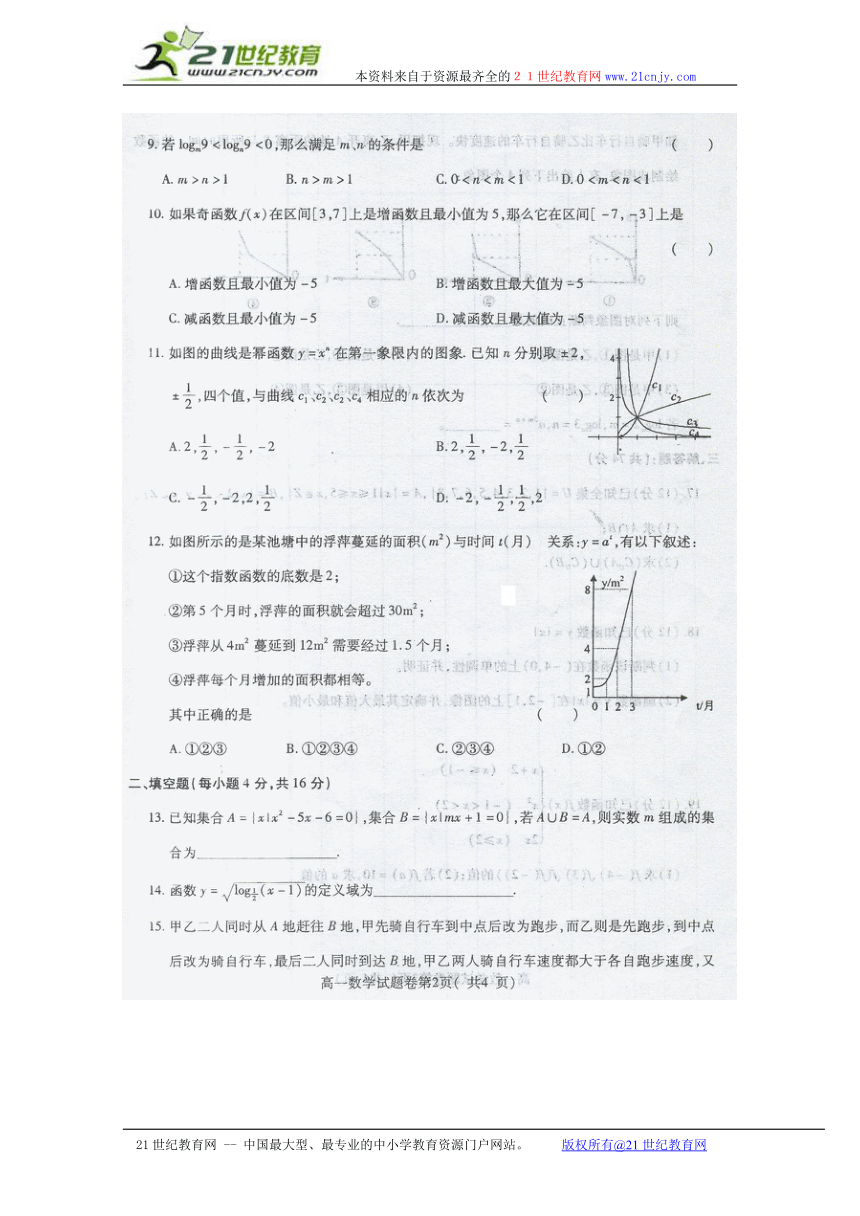 21世纪教育
www.21cnjy.com
本资料来自于资源最齐全的２１世纪教育网 www.21cnjy.com
9. 若 logₘ9 < logₙ9 < 0,那么满足 m、n 的条件是 ( )
A. m > n > 1 B. n > m > 1 C. 0 < n < m < 1 D. 0 < m < n < 1
10. 如果奇函数 f(x) 在区间[3,7]上是增函数且最小值为 5,那么它在区间[ -7, -3]上是
( )
A. 增函数且最小值为 -5 B. 增函数且最大值为 -5
C. 减函数且最小值为 -5 D. 减函数且最大值为 -5
11. 如图的曲线是幂函数 y = xⁿ 在第一象限内的图象. 已知 n 分别取 ±2,
± 1/2 ,四个值,与曲线 c₁、c₂、c₂、c₄ 相应的 n 依次为 ( )
4 2 c₁ c₂ c₃ c₄
A. 2, 1/2, - 1/2, -2 B. 2, 1/2, -2, 1/2
C. - 1/2, -2,2, 1/2 D. -2, - 1/2, 1/2, 2
12. 如图所示的是某池塘中的浮萍蔓延的面积(m²)与时间 t(月) 关系:y = aᵗ,有以下叙述:
①这个指数函数的底数是 2;
②第 5 个月时,浮萍的面积就会超过 30m²;
③浮萍从 4m² 蔓延到 12m² 需要经过 1.5 个月;
④浮萍每个月增加的面积都相等。
其中正确的是 ( )
y/m² 8 4 2 1 0 1 2 3 t/月
A. ①②③ B. ①②③④ C. ②③④ D. ①②
二、填空题(每小题 4 分,共 16 分)
13. 已知集合 A = {x|x² -5x -6 =0} ,集合 B = {x|mx +1 =0} ,若 A∪B = A,则实数 m 组成的集
合为 .
14. 函数 y = √(log_{1/2}(x -1)) 的定义域为 .
15. 甲乙二人同时从 A 地赶往 B 地,甲先骑自行车到中点后改为跑步,而乙则是先跑步,到中点
后改为骑自行车,最后二人同时到达 B 地,甲乙两人骑自行车速度都大于各自跑步速度,又
高一数学试题卷第2页( 共4 页)
21世纪教育网 -- 中国最大型、最专业的中小学教育资源门户网站。 版权所有@21世纪教育网